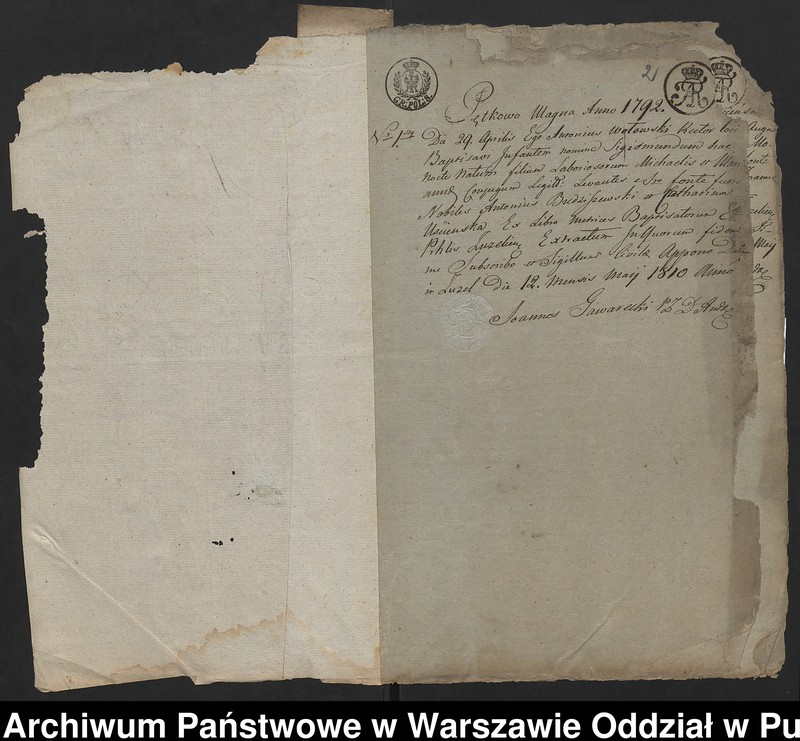 GR. POL: 8.
21
Pętkowo Magna Anno 1792.
Die 29. Aprilis Ego Antonius Wotowski Rector loci
Baptisavi Infantem nomine Sigismundum hac
Nocte Natum filium Laboriosorum Michaelis et Mari
annæ Conjugum Legitt: Levantes e Sro fonte fuere
Nobiles Antonius Budziszewski et Catharina
Ex Libro Metrices Baptisatorum
Luzelien: Extractum In Quorum fidem
me Subscribo et Sigillum Appono
in Luzel Die 12. Mensis Maij 1810 Anno
Joannes Gawarecki
Maij
Archiwum Państwowe w Warszawie Oddział w Pu